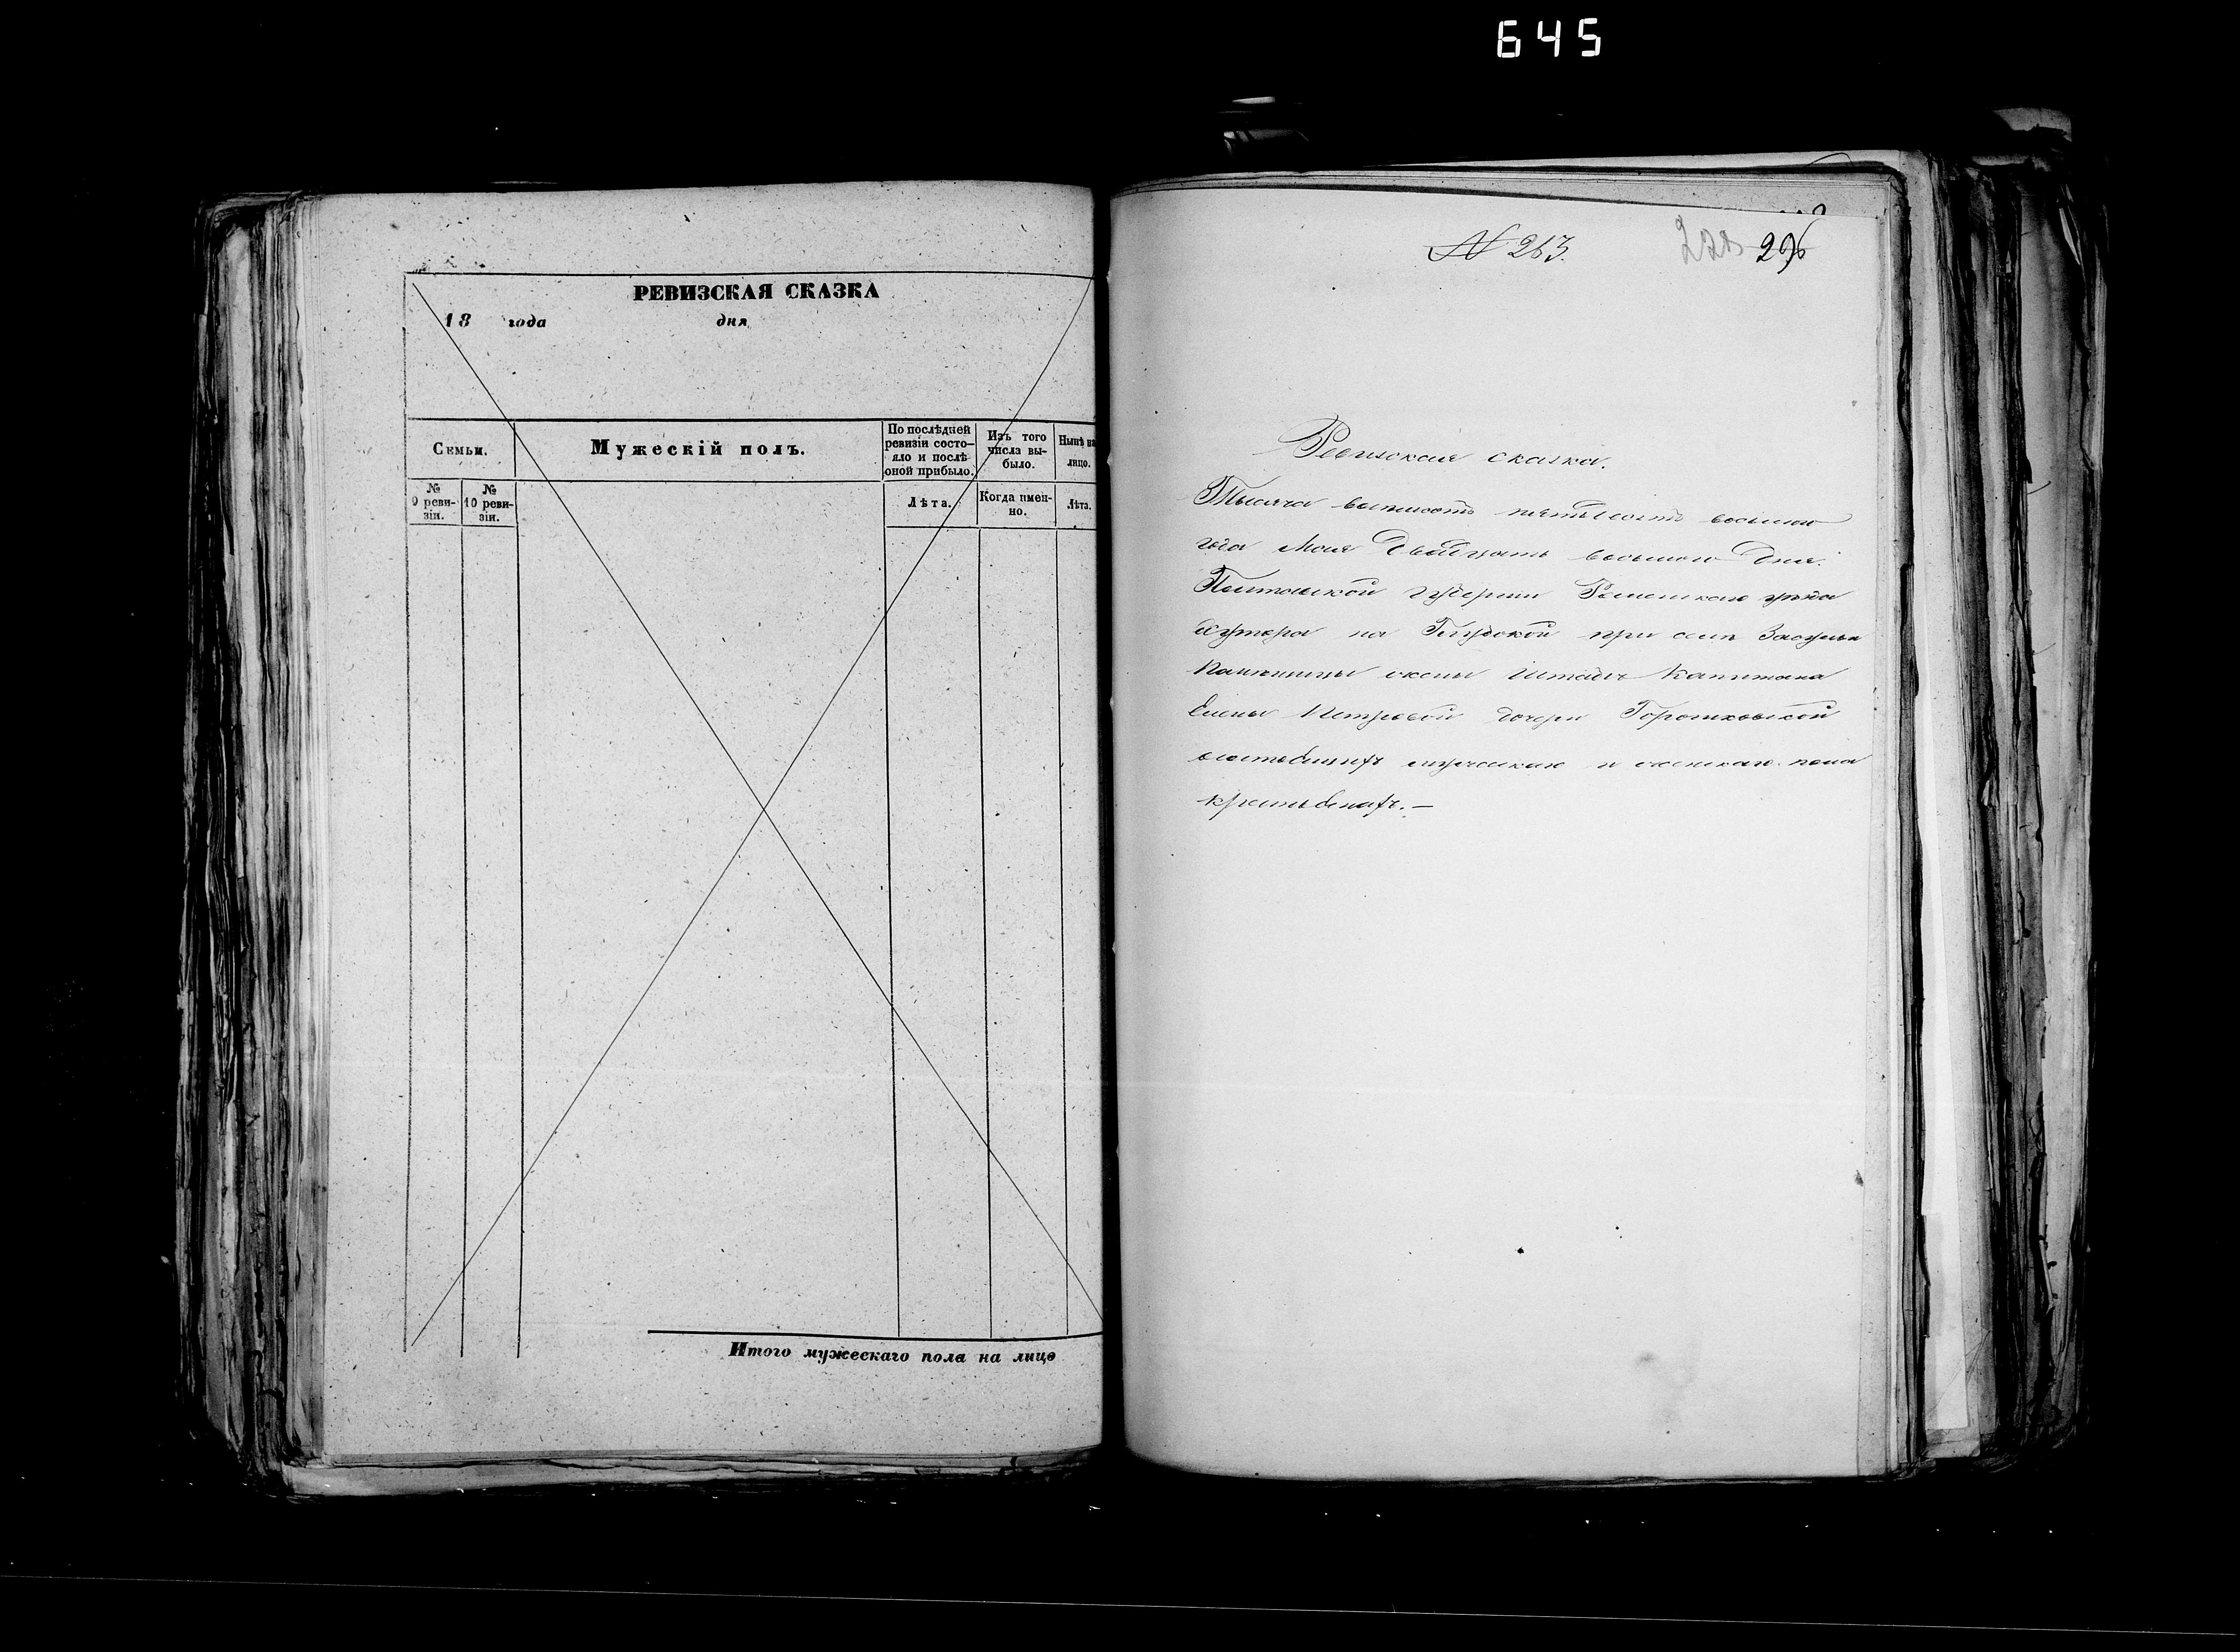 645
РЕВИЗСКАЯ СКАЗКА
18 года дня
Семьи.
Мужескій полъ.
По послѣдней ревизіи состо-
яло и послѣ
оной прибыло.
Изъ того
числа вы-
было.
Нынѣ на
лицо.
№
9 реви-
зіи.
№
10 реви-
зіи.
Лѣта.
Когда имен-
но.
Лѣта.
Итого мужескаго пола на лицо
N 263.
296
Ревизская сказка.
Тысяча восемьсотъ пятьдесятъ восьмаго
года Мая двадцать восьмаго дня.
Полтавской губерніи Роменскаго уѣзда
хутора на Глубокой при селѣ Засульи
Помѣщицы жены Штабсъ Капитана
Елены Петровой дочери Горошковской
о состоящихъ мужеска и женскаго пола
крестьянахъ.—